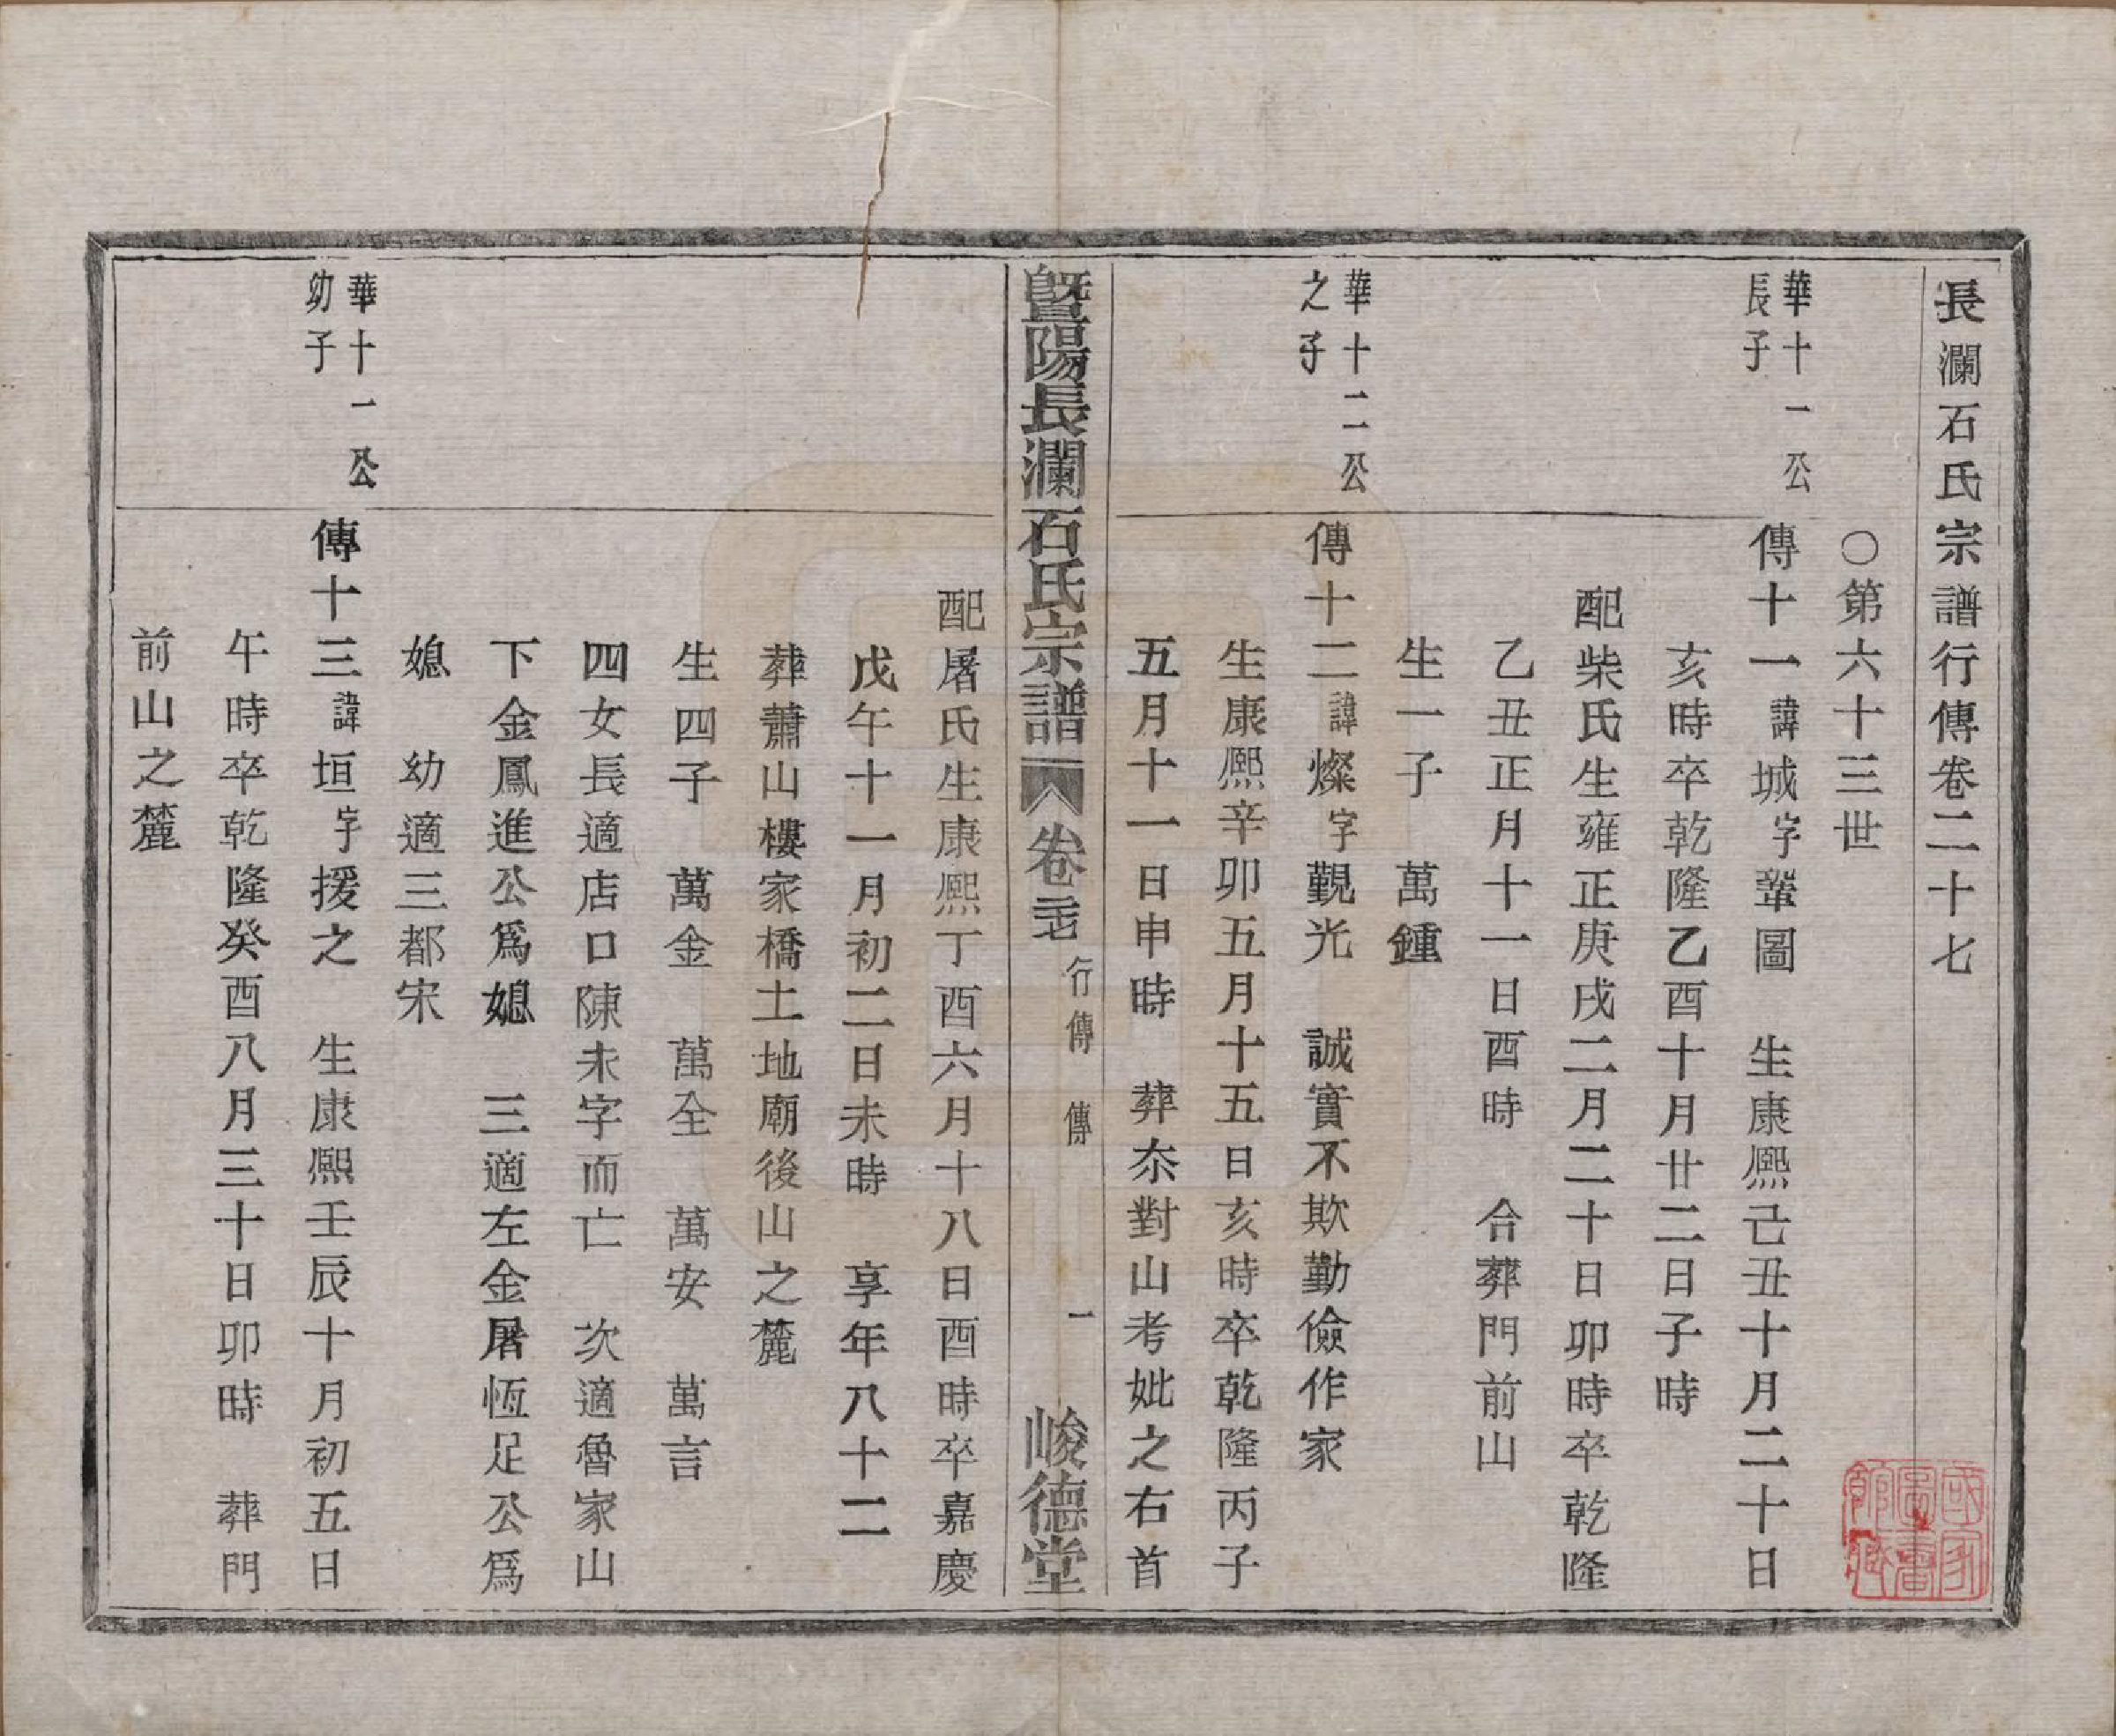 長瀾石氏宗譜行傳卷二十七
〇第六十三世
華十一公
長子
傳十一諱城字鞏圖　生康熙己丑十月二十日
亥時卒乾隆乙酉十月廿二日子時
配柴氏生雍正庚戌二月二十日卯時卒乾隆
乙丑正月十一日酉時　合葬門前山
生一子　萬鍾
華十二公
之子
傳十二諱燦字觀光　誠實不欺勤儉作家
生康熙辛卯五月十五日亥時卒乾隆丙子
五月十一日申時　葬夵對山考妣之右首
暨陽長瀾石氏宗譜　卷二十七　行傳　傳　一　峻德堂
配屠氏生康熙丁酉六月十八日酉時卒嘉慶
戊午十一月初二日未時　享年八十二
葬蕭山樓家橋土地廟後山之麓
生四子　萬金　萬全　萬安　萬言
四女長適店口陳未字而亡　次適魯家山
下金鳳進公爲媳　三適左金屠恆足公爲
媳　幼適三都宋
華十一公
幼子
傳十三諱垣字援之　生康熙壬辰十月初五日
午時卒乾隆癸酉八月三十日卯時　葬門
前山之麓
國家圖書館藏